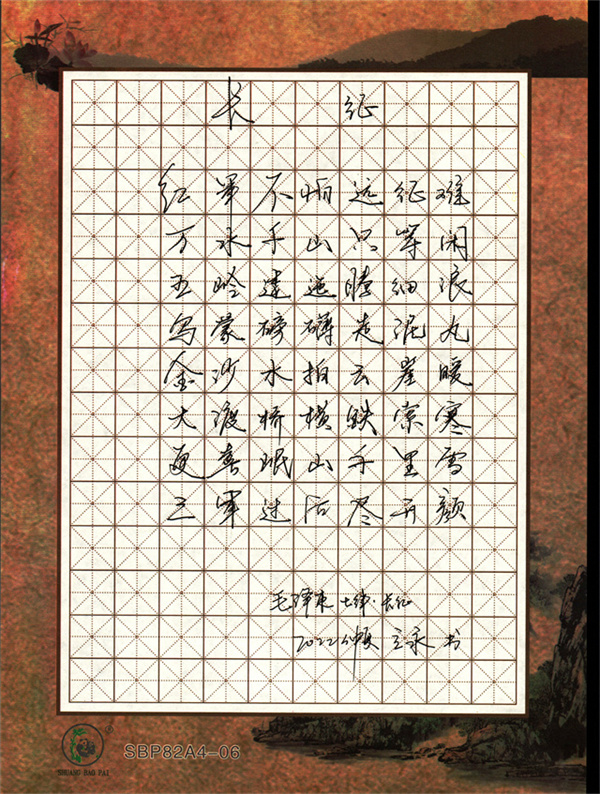 长征
红军不怕远征难
万水千山只等闲
五岭逶迤腾细浪
乌蒙磅礴走泥丸
金沙水拍云崖暖
大渡桥横铁索寒
更喜岷山千里雪
三军过后尽开颜
毛泽东 七律·长征
2022仲夏 立永 书
SHUANG BAO PAI
SBP82A4-06